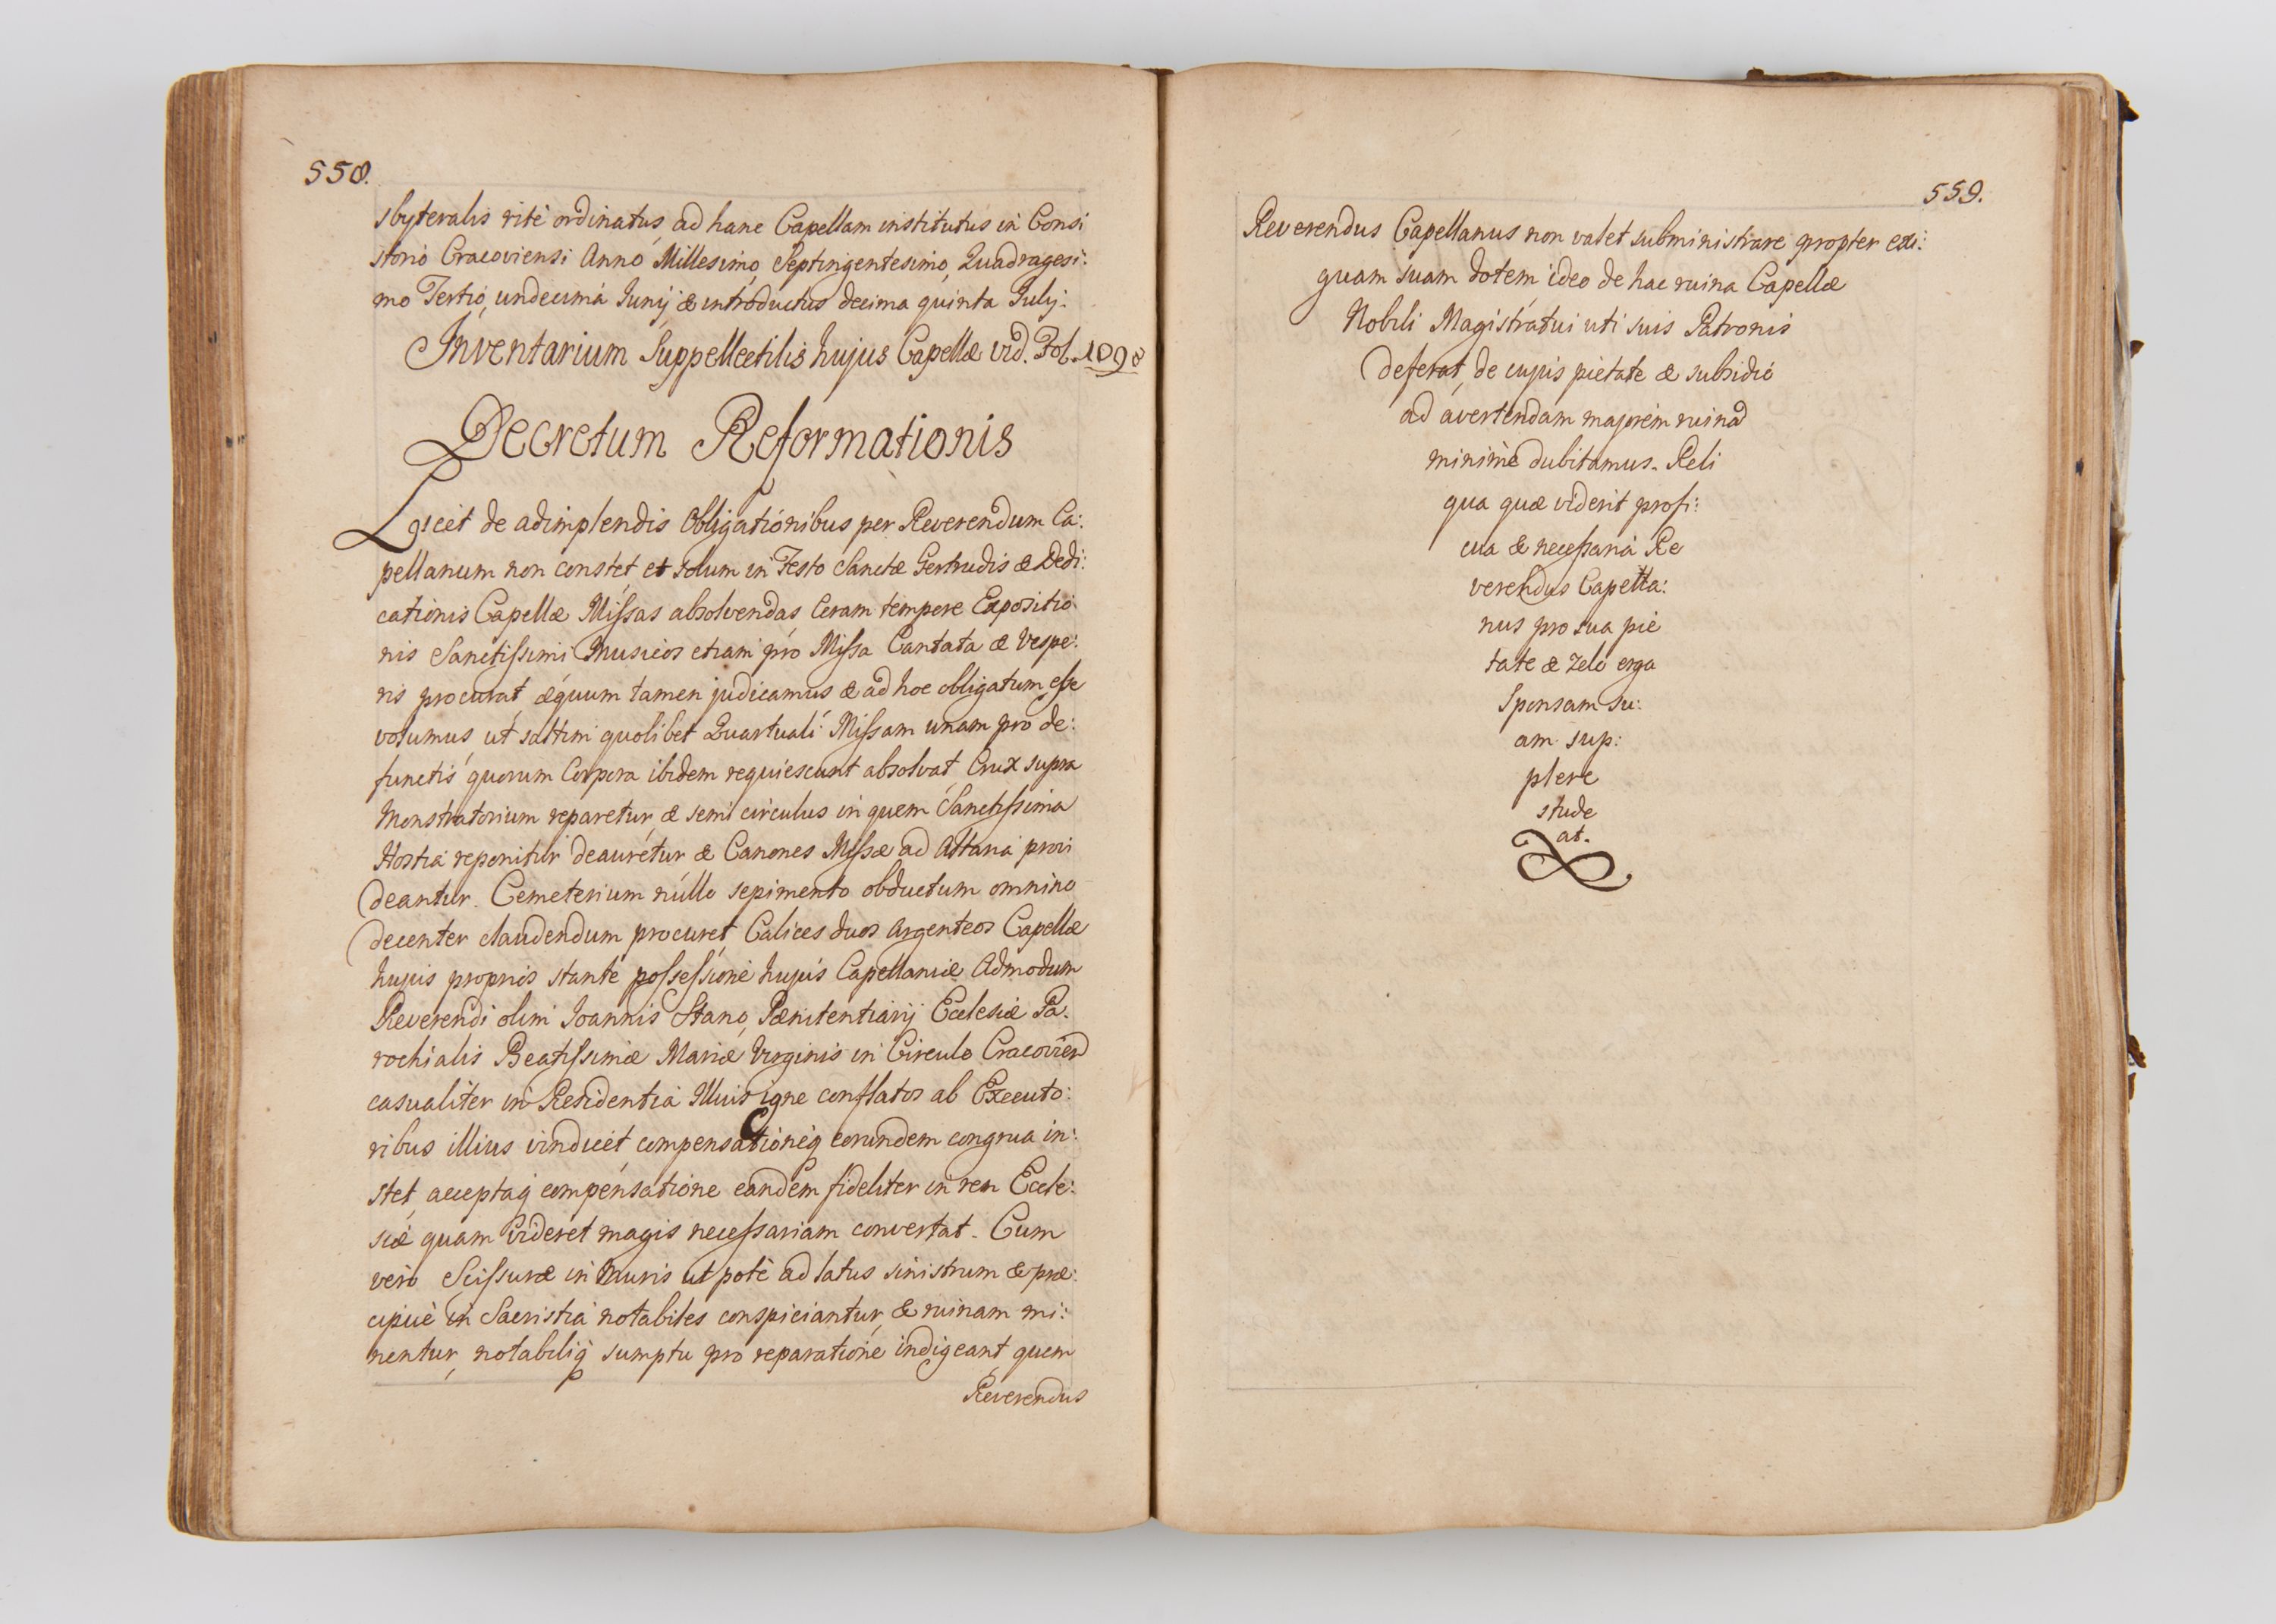 558.
sbyteralis ritè ordinatus, ad hanc Capellam institutus in Consi
storio Cracoviensi Anno Millesimo, Septingentesimo, Quadragesi:
mo Tertio, undecima Junij & introductus decima quinta Julij.
Inventarium Suppellectilis hujus Capellæ vid. Fol. 1098
Decretum Reformationis
Licet de adimplendis Obligationibus per Reverendum Ca:
pellanum non constet et solum in Festo Sanctæ Gertrudis & Dedi:
cationis Capellæ Missas absolvendas, Ceram tempore Expositio
nis Sanctissimi Musicos etiam pro Missa Cantata & Vespe:
ris procurat, æquum tamen judicamus & ad hoc obligatum esse
volumus, ut saltim quolibet Quartuali Missam unam pro de:
functis quorum Corpora ibidem requiescunt absolvat, Crux supra
Monstratorium reparetur, & semi circulus in quem Sanctissima
Hostia reponitur deauretur & Canones Missæ ad Altaria provi
deantur. Cemeterium nullo sepimento obductum omnino
decenter claudendum procuret, Calices duos Argenteos Capellæ
hujus proprios stante possessione hujus Capellaniæ Admodum
Reverendi olim Joannis Stano, Pænitentiarij Ecclesiæ Pa.
rochialis Beatissimæ Mariæ Virginis in Circulo Cracovien
casualiter in Residentia Illius igne conflatos ab Executo:
ribus illius vindicet, compensationiq eorundem congrua in:
stet, acceptaq compensatione eandem fideliter in rem Eccle:
siæ quam videret magis necessariam convertat. Cum
vero Scissuræ in Muris ut potè ad latus sinistrum & præ:
cipuè in Sacristia notabiles conspiciantur, & ruinam mi:
nentur, notabiliq sumptu pro reparatione indigeant, quem
Reverendus
559.
Reverendus Capellanus non valet subministrare propter exi:
guam suam dotem ideo de hac ruina Capellæ
Nobili Magistratui uti suis Patronis
deferat, de cujus pietate & subsidio
ad avertendam majorem ruinā
minimè dubitamus. Reli
qua quæ viderit profi:
cua & necessaria Re
verendus Capella:
nus pro sua pie
tate & zelo erga
Sponsam su:
am sup:
plere
stude
at.